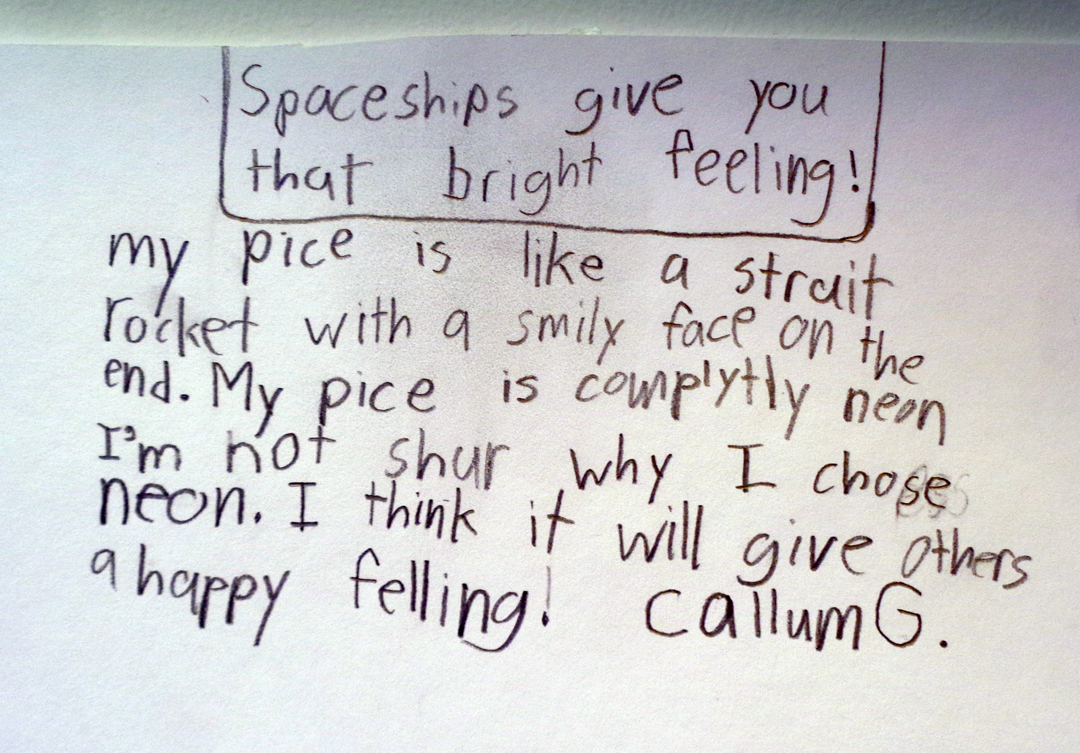 Spaceships give you
that bright feeling!
my pice is like a strait
rocket with a smily face on the
end. My pice is complytly neon
I'm not shur why I chose
neon. I think it will give others
a happy felling! Callum G.